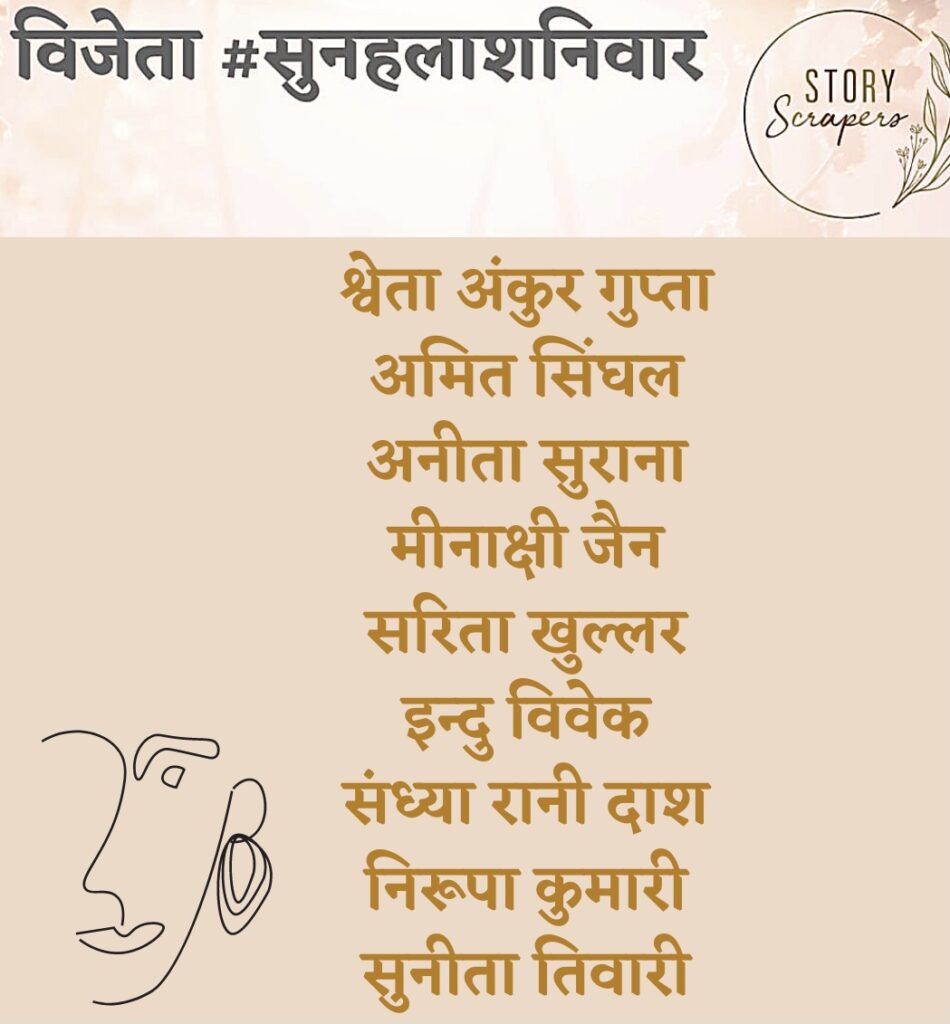 विजेता #सुनहलाशनिवार
STORY
Scrapers
श्वेता अंकुर गुप्ता
अमित सिंघल
अनीता सुराना
मीनाक्षी जैन
सरिता खुल्लर
इन्दु विवेक
संध्या रानी दाश
निरूपा कुमारी
सुनीता तिवारी